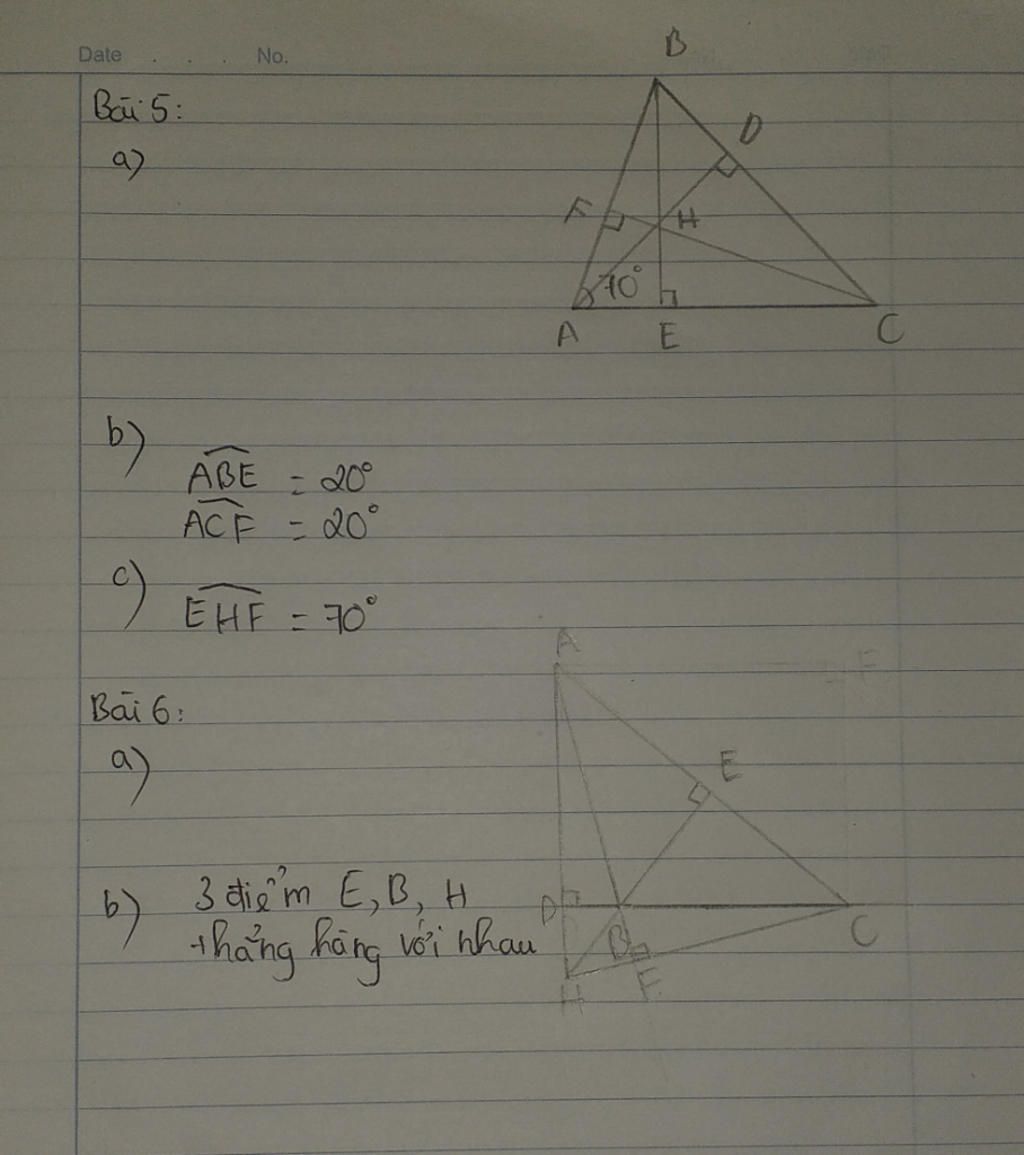 Date . . . No.
Bài 5:
a)
B
D
F
H
70°
A
E
C
b)
ABE = 20°
ACF = 20°
c)
EHF = 70°
Bài 6:
a)
A
F
E
D
B
C
H
F
b) 3 điểm E, B, H
thẳng hàng với nhau